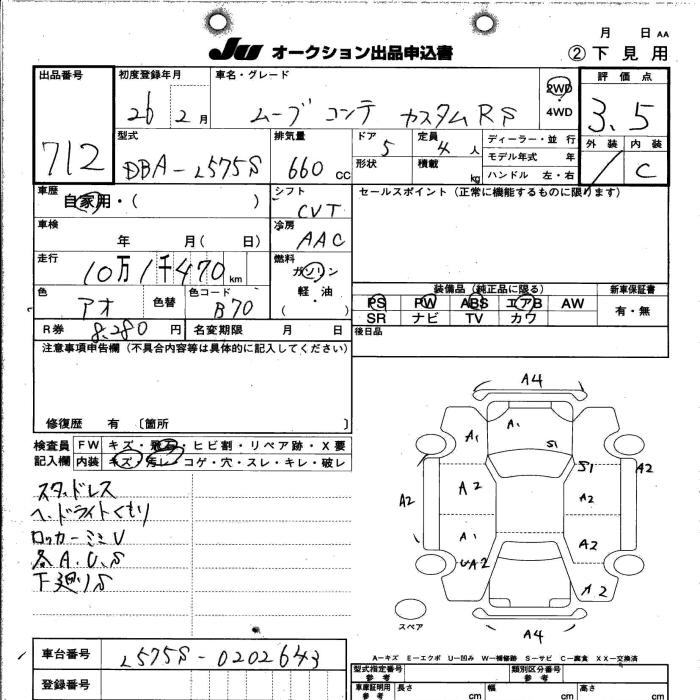 月 日 AA
JU オークション出品申込書 ②下見用
出品番号 712
初度登録年月 26 2月
車名・グレード ムーブ コンテ カスタムRS
2WD 4WD
評価点 3.5
外装 内装 C
型式 DBA-L575S
排気量 660 cc
ドア 5
形状
定員 4人
積載 kg
ディーラー・並行
モデル年式 年
ハンドル 左・右
車歴 自家用・( )
シフト CVT
セールスポイント(正常に機能するものに限ります)
車検 年 月( 日)
冷房 AAC
走行 10万1千470km
燃料 ガソリン 軽油 ( )
色 アオ 色替 色コード B70
装備品(純正品に限る) 新車保証書
PS PW ABS エアB AW 有・無
SR ナビ TV カワ
R券 8,280円 名変期限 月 日
後日品
注意事項申告欄(不具合内容等は具体的に記入してください)
修復歴 有 〔箇所 〕
検査員記入欄
FW キズ・飛石・ヒビ割・リペア跡・X要
内装 キズ・汚レ・コゲ・穴・スレ・キレ・破レ
スタッドレス
ヘッドライトくもり
ロッカーミミU
各A.U.S
下廻りS
A4
A1 A1 S1
A2 A2 S1 A2 A2
A1 A2
UA2 A2
スペア
A4
A-キズ E-エクボ U-凹み W-補修跡 S-サビ C-腐食 XX-交換済
車台番号 L575S-0202643
登録番号
型式指定番号 参考
類別区分番号 参考
車庫証明用 参考 長さ cm 幅 cm 高さ cm